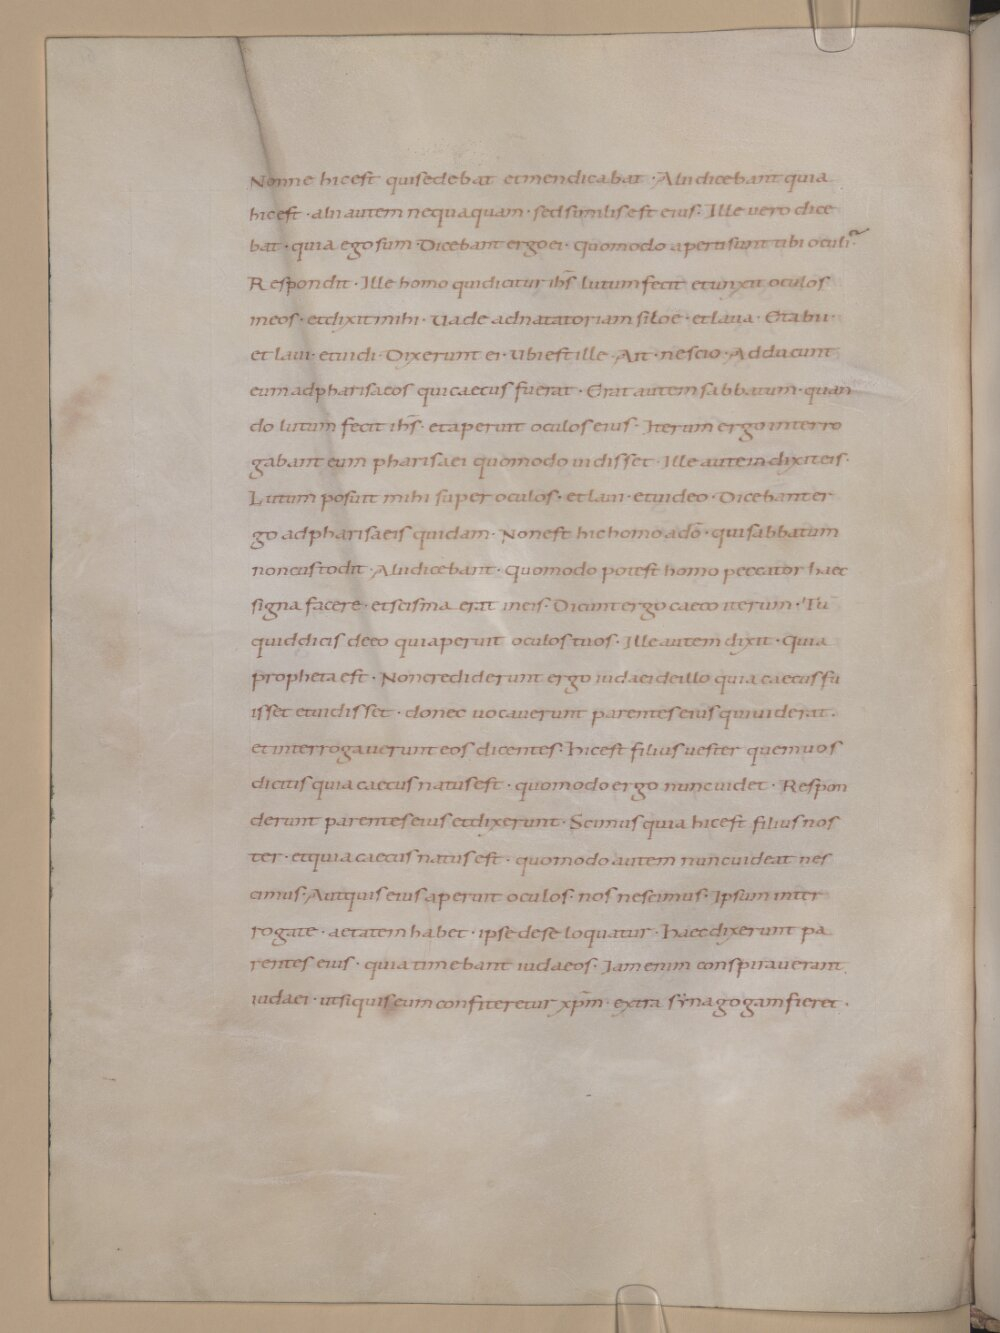 Nonne hic est qui sedebat et mendicabat · Alii dicebant quia
hic est · alii autem nequaquam · sed similis est eius · Ille vero dice
bat · quia ego sum · Dicebant ergo ei · Quomodo aperti sunt tibi oculi ·
Respondit · Ille homo qui dicitur ihs̄ lutum fecit et unxit oculos
meos · et dixit mihi · Vade ad natatoriam siloe · et lava · Et abii ·
et lavi · et vidi · Dixerunt ei · Ubi est ille · Ait · nescio · Adducunt
eum ad pharisaeos qui caecus fuerat · Erat autem sabbatum · quan
do lutum fecit ihs̄ · et aperuit oculos eius · Iterum ergo interro
gabant eum pharisaei quomodo vidisset · Ille autem dixit eis ·
Lutum posuit mihi super oculos · et lavi · et video · Dicebant er
go ad pharisaeis quidam · Non est hic homo a dō · qui sabbatum
non custodit · Alii dicebant · Quomodo potest homo peccator haec
signa facere · et scisma erat in eis · Dicunt ergo caeco iterum · Tu
quid dicis de eo qui aperuit oculos tuos · Ille autem dixit · Quia
propheta est · Non crediderunt ergo iudaei de illo quia caecus fu
isset et vidisset · donec vocaverunt parentes eius qui viderat ·
et interrogaverunt eos dicentes · Hic est filius vester quem vos
dicitis quia caecus natus est · quomodo ergo nunc videt · Respon
derunt parentes eius et dixerunt · Scimus quia hic est filius nos
ter · et quia caecus natus est · quomodo autem nunc videat nes
cimus · Aut quis eius aperuit oculos · nos nescimus · Ipsum inter
rogate · aetatem habet · ipse de se loquatur · Haec dixerunt pa
rentes eius · quia timebant iudaeos · Iam enim conspiraverant
iudaei · ut si quis eum confiteretur xp̄m · extra synagogam fieret ·